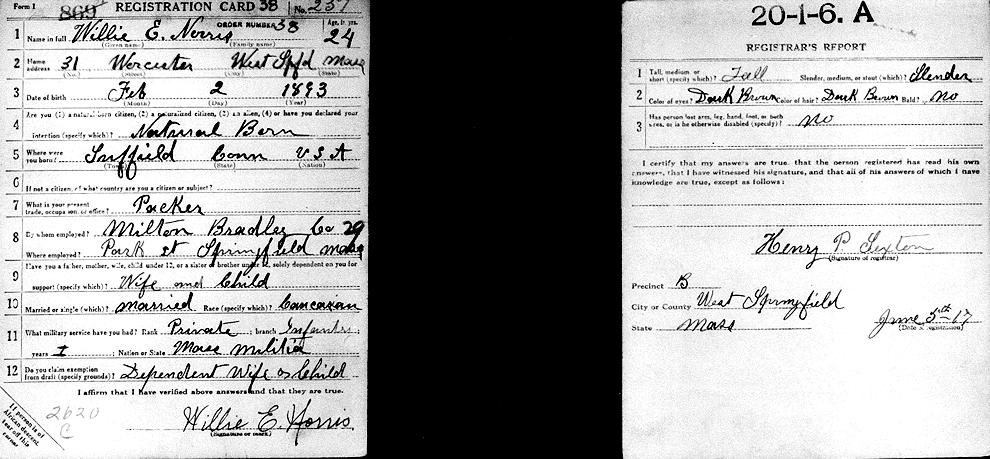 Form 1 869 REGISTRATION CARD 38 No. 237
ORDER NUMBER 38
1 Name in full Willie E. Norris Age, in yrs. 24
(Given name) (Family name)
2 Home address 31 Worcester West Spfd Mass
(No.) (Street) (City) (State)
3 Date of birth Feb 2 1893
(Month) (Day) (Year)
4 Are you (1) a natural-born citizen, (2) a naturalized citizen, (3) an alien, (4) or have you declared your
intention (specify which)? Natural Born
5 Where were you born? Suffield Conn U S A
(Town) (State) (Nation)
6 If not a citizen, of what country are you a citizen or subject?
7 What is your present trade, occupation, or office? Packer
8 By whom employed? Milton Bradley Co 29
Where employed? Park st Springfield mass
9 Have you a father, mother, wife, child under 12, or a sister or brother under 12, solely dependent on you for
support (specify which)? Wife and Child
10 Married or single (which)? married Race (specify which)? Caucasan
11 What military service have you had? Rank Private ; branch Infantry ;
years I ; Nation or State Mass militia
12 Do you claim exemption from draft (specify grounds)? Dependent Wife & Child
I affirm that I have verified above answers and that they are true.
Willie E. Norris
(Signature or mark)
If person is of
African descent,
tear off this
corner
2620
C
20-1-6. A
REGISTRAR'S REPORT
1 Tall, medium or short (specify which)? Tall Slender, medium, or stout (which)? Slender
2 Color of eyes? Dark Brown Color of hair? Dark Brown Bald? no
3 Has person lost arm, leg, hand, foot, or both
eyes, or is he otherwise disabled (specify)? no
I certify that my answers are true, that the person registered has read his own
answers, that I have witnessed his signature, and that all of his answers of which I have
knowledge are true, except as follows:
Henry P. Sexton
(Signature of registrar)
Precinct B
City or County West Springfield
State Mass
June 5th-17
(Date of registration)